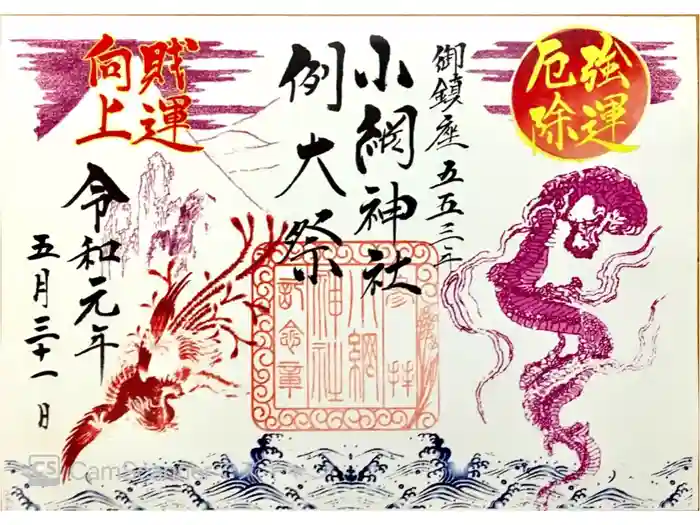 強運
厄除
御鎮座五五三年
小網神社
例大祭
財運
向上
令和元年
五月三十一日
参拝
小網
神社
記念章
CS CamScanner